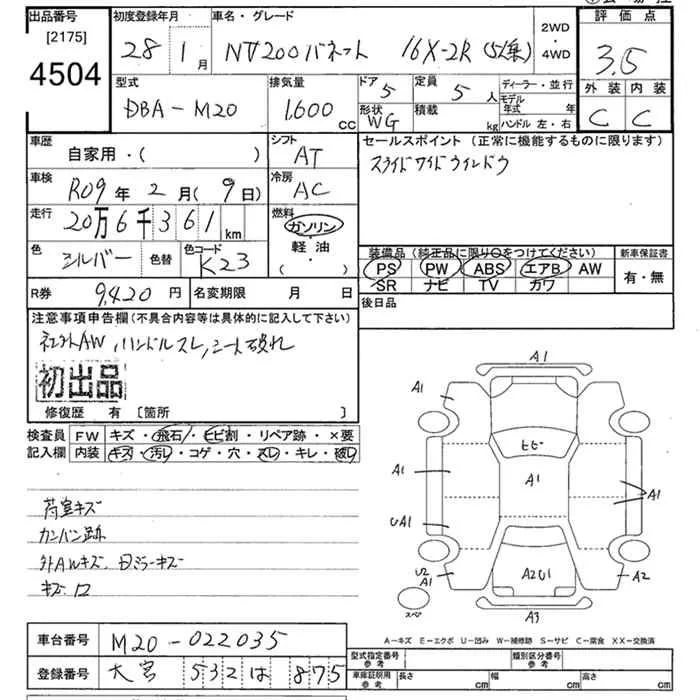 出品番号 初度登録年月 車名・グレード 評価点
[2175] 4504 28 1月 NV200バネット 16X-2R (5人乗) 2WD・4WD 3.5
型式 排気量 ドア 5 定員 5人 ディーラー・並行 外装 内装
DBA-M20 1,600cc 形状 WG 積載 kg モデル年式 年 ハンドル 左・右 C C
車歴 シフト セールスポイント (正常に機能するものに限ります)
自家用・( ) AT スライドワイドウインドウ
車検 冷房
R09年 2月 (9日) AC
走行 燃料
20万6千361km ガソリン
色 色替 色コード 軽油 装備品(純正品に限り○をつけてください) 新車保証書
シルバー K23 (・) PS PW ABS エアB AW 有・無
SR ナビ TV カワ
R券 9,420円 名変期限 月 日 後日品
注意事項申告欄(不具合内容等は具体的に記入して下さい)
社外AW, ハンドルスレ, シート破れ
初出品
修復歴 有 [箇所 ]
検査員 FW キズ・飛石・ヒビ割・リペア跡・×要
記入欄 内装 キズ・汚レ・コゲ・穴・スレ・キレ・破レ
荷室キズ
カンバン跡
外AWキズ、日ミラーキズ
A1
A1
ヒビ
A1 A1 A1
UA1
U2 A1 A2U1 A2
スペア A3
A-キズ E-エクボ U-凹み W-補修跡 S-サビ C-腐食 XX-交換済
車台番号 M20-022035
登録番号 大宮 532 は 875
型式指定番号 参考 類別区分番号 参考
車庫証明用 参考 長さ cm 幅 cm 高さ cm